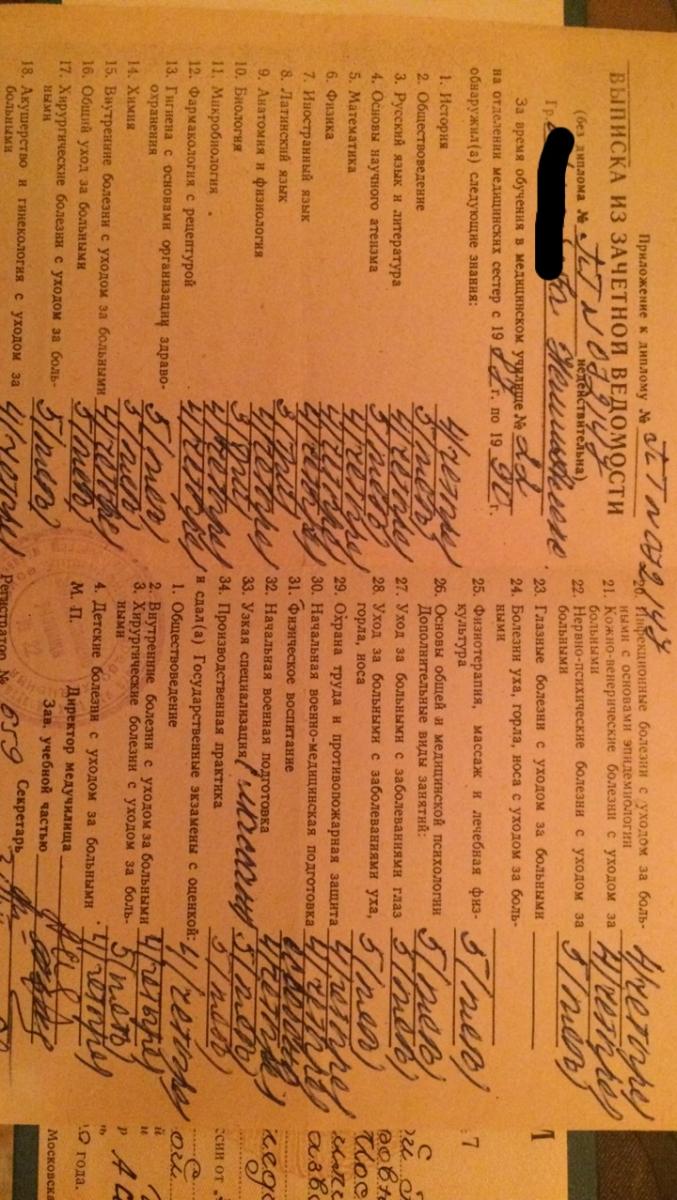 Приложение к диплому № ПТ № 072147
ВЫПИСКА ИЗ ЗАЧЕТНОЙ ВЕДОМОСТИ
(без диплома № ПТ № 072147 недействительна)
Гр.
За время обучения в медицинском училище № 22
на отделении медицинских сестер с 19 г. по 19 90 г.
обнаружил(а) следующие знания:
1. История 4/четыре/
2. Обществоведение 5/пять/
3. Русский язык и литература 4/четыре/
4. Основы научного атеизма 5/пять/
5. Математика 4/четыре/
6. Физика 4/четыре/
7. Иностранный язык 4/четыре/
8. Латинский язык 3/три/
9. Анатомия и физиология 4/четыре/
10. Биология 3/три/
11. Микробиология 4/четыре/
12. Фармакология с рецептурой 4/четыре/
13. Гигиена с основами организации здраво-
охранения 5/пять/
14. Химия 3/три/
15. Внутренние болезни с уходом за больными 4/четыре/
16. Общий уход за больными 5/пять/
17. Хирургические болезни с уходом за боль-
ными 5/пять/
18. Акушерство и гинекология с уходом за
больными 4/четыре/
20. Инфекционные болезни с уходом за боль-
ными с основами эпидемиологии 4/четыре/
21. Кожно-венерические болезни с уходом за
больными 4/четыре/
22. Нервно-психические болезни с уходом за
больными 5/пять/
23. Глазные болезни с уходом за больными
24. Болезни уха, горла, носа с уходом за боль-
ными
25. Физиотерапия, массаж и лечебная физ-
культура 5/пять/
26. Основы общей и медицинской психологии 5/пять/
Дополнительные виды занятий:
27. Уход за больными с заболеваниями глаз 5/пять/
28. Уход за больными с заболеваниями уха,
горла, носа 5/пять/
29. Охрана труда и противопожарная защита 4/четыре/
30. Начальная военно-медицинская подготовка 4/четыре/
31. Физическое воспитание
32. Начальная военная подготовка 4/четыре/
33. Узкая специализация 5/пять/
34. Производственная практика 5/пять/
и сдал(а) Государственные экзамены с оценкой:
1. Обществоведение 4/четыре/
2. Внутренние болезни с уходом за больными 4/четыре/
3. Хирургические болезни с уходом за боль-
ными 5/пять/
4. Детские болезни с уходом за больными 4/четыре/
М. П. Директор медучилища
Зав. учебной частью
Регистратор № 659 Секретарь
7
Московска
года.